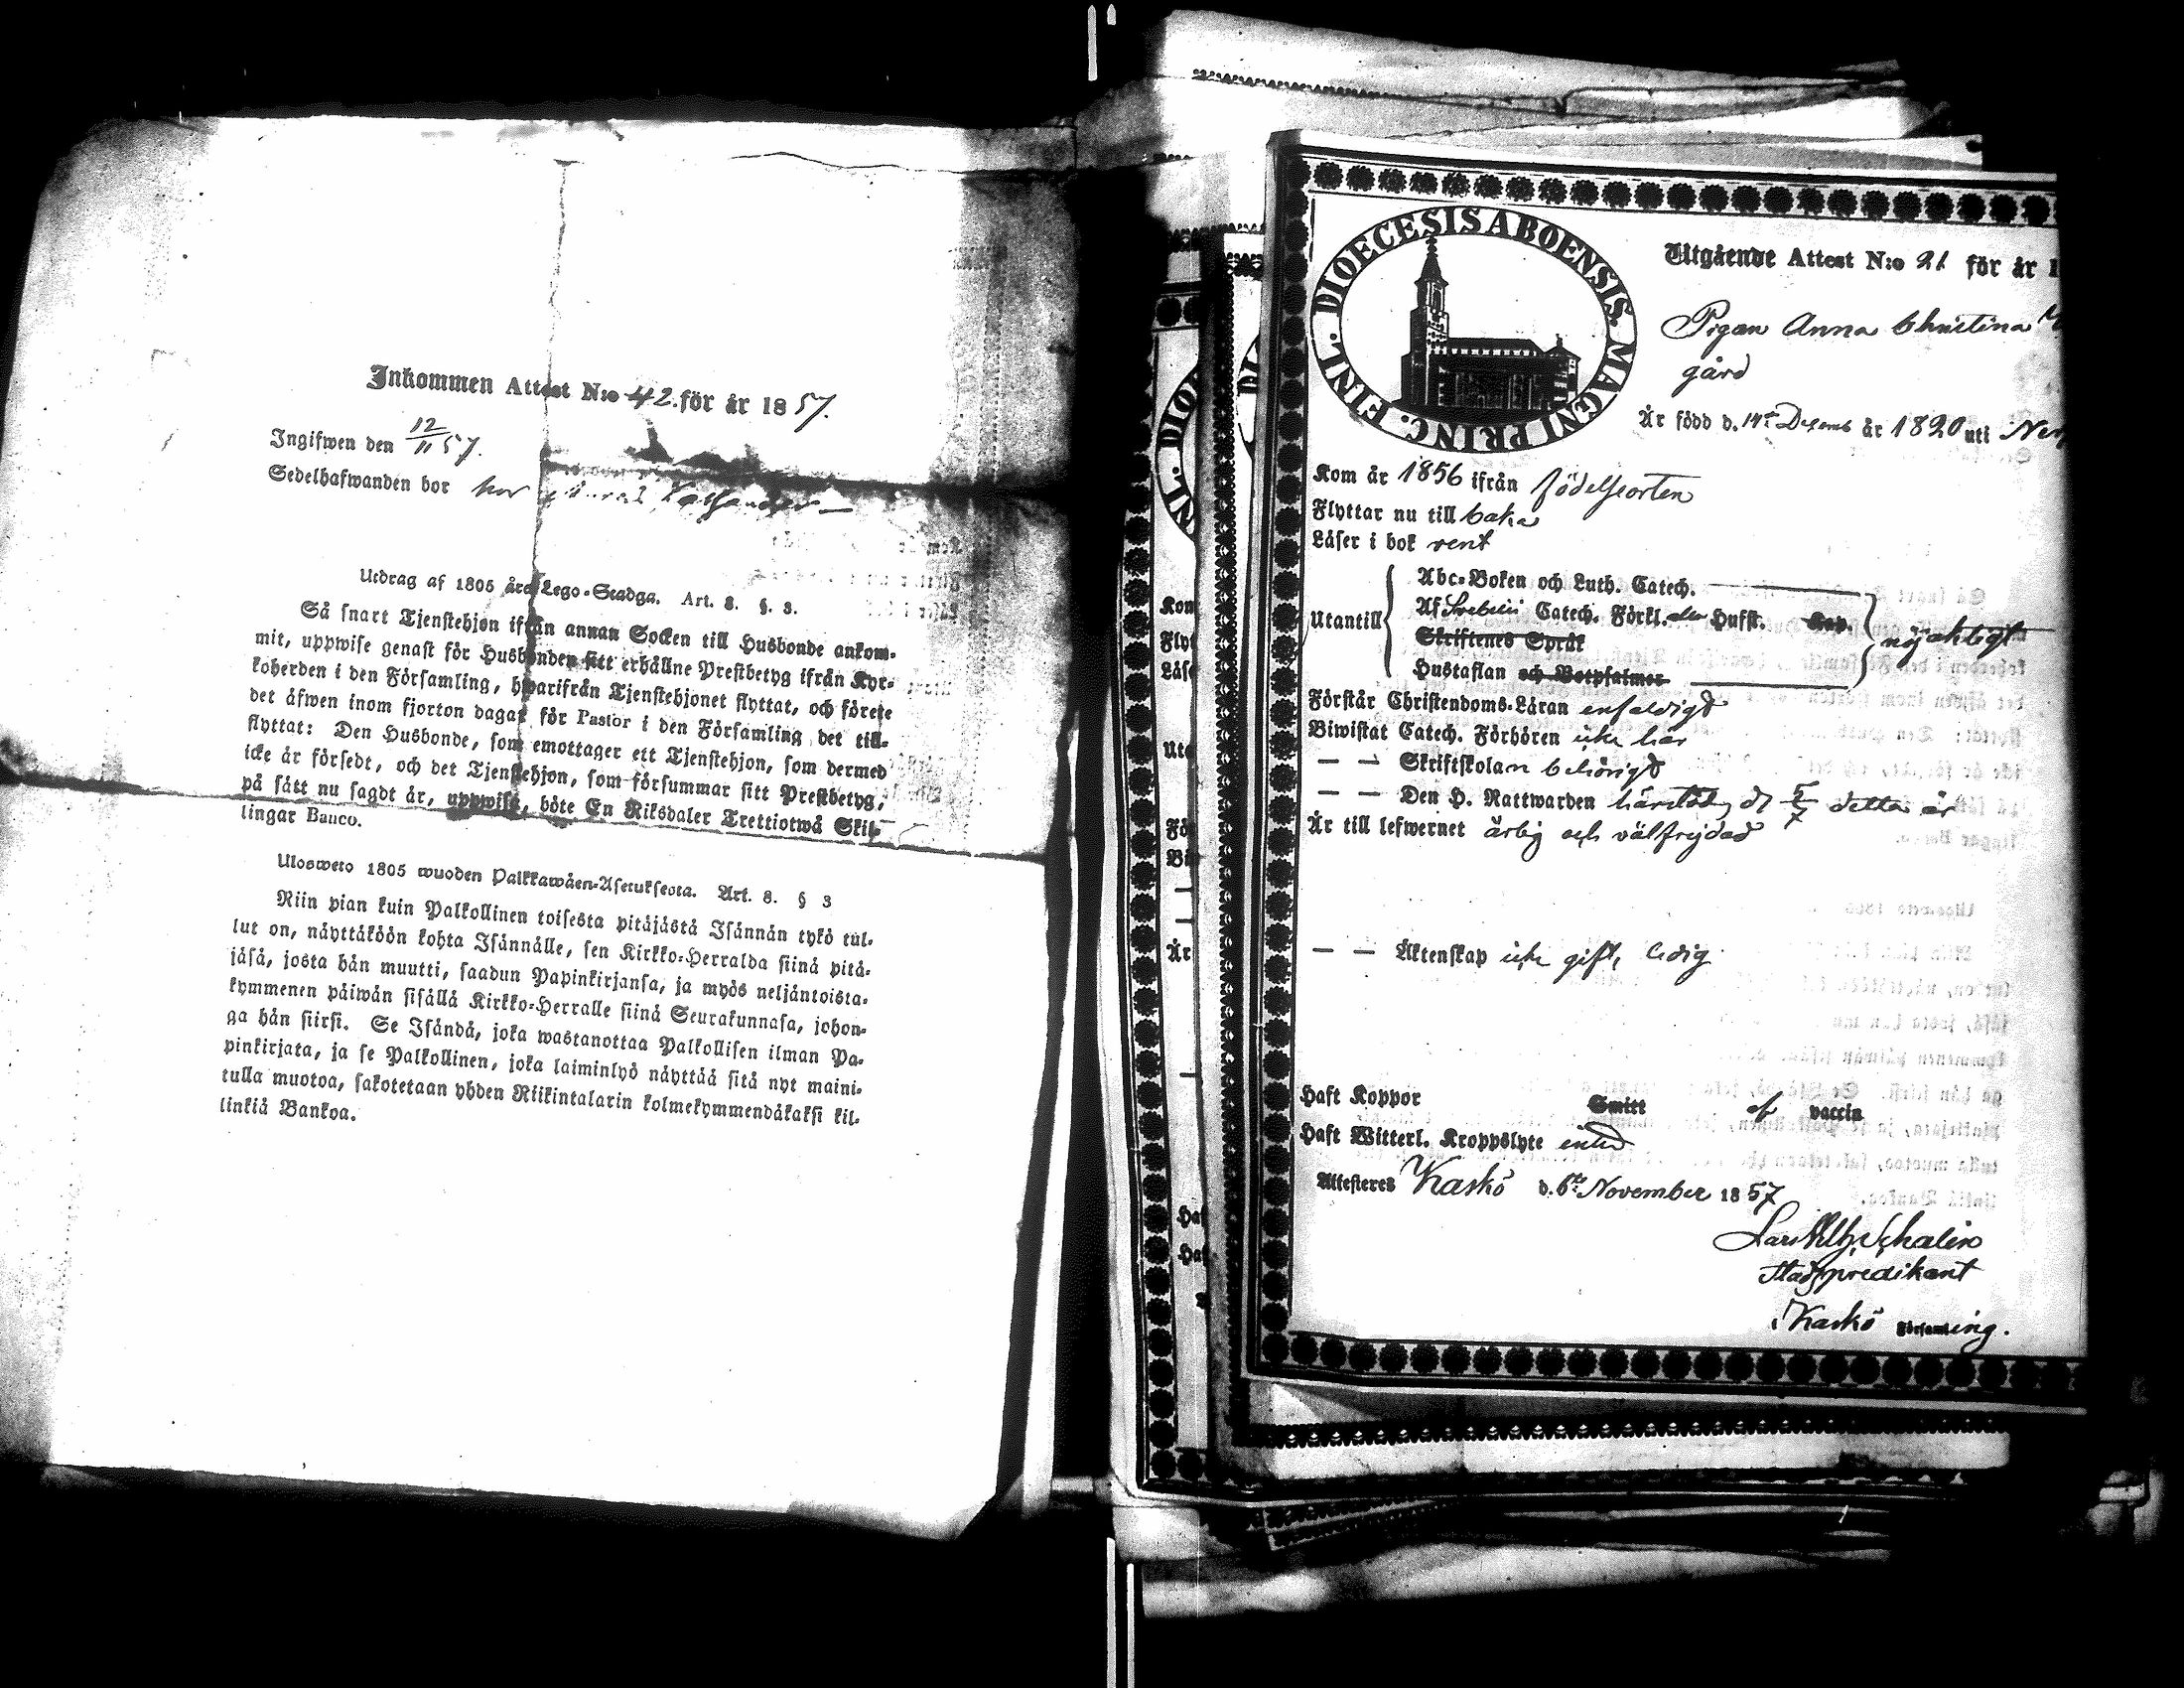 Inkommen Attest N:o 42. för år 1857.
Ingifwen den 12/11 57.
Sedelhafwanden bor hos
Utdrag af 1805 års Lego-Stadga. Art. 8. §. 3.
Så snart Tjenstehjon ifrån annan Socken till Husbonde ankom-
mit, uppwise genast för Husbonden sitt erhållne Prestbetyg ifrån Kyr-
koherden i den Församling, hwarifrån Tjenstehjonet flyttat, och förete
det äfwen inom fjorton dagar för Pastor i den Församling det till-
flyttat: Den Husbonde, som emottager ett Tjenstehjon, som dermed
icke är försedt, och det Tjenstehjon, som försummar sitt Prestbetyg,
på sätt nu sagdt är, uppwisa, böte En Riksdaler Trettiotwå Skil-
lingar Banco.
Ulosweto 1805 wuoden Palkkawäen-Asetuksesta. Art. 8. § 3
Niin pian kuin Palkollinen toisesta pitäjästä Isännän tykö tul-
lut on, näyttäköön kohta Isännälle, sen Kirkko-Herralda siinä pitä-
jäsä, josta hän muutti, saadun Papinkirjansa, ja myös neljäntoista-
kymmenen päiwän sisällä Kirkko-Herralle siinä Seurakunnasa, johon-
ga hän siirsi. Se Isändä, joka wastanottaa Palkollisen ilman Pa-
pinkirjata, ja se Palkollinen, joka laiminlyö näyttää sitä nyt maini-
tulla muotoa, sakotetaan yhden Riikintalarin kolmekymmendäkaksi kil-
linkiä Bankoa.
DIOECESIS ABOENSIS. MAGNI PRINC. FINL.
Utgående Attest N:o 21 för år 1
Pigan Anna Christina
gård
Är född d. 14de Decemb år 1820 uti
Kom år 1856 ifrån födelseorten
Flyttar nu till baka
Läser i bok rent
Abc-Boken och Luth. Catech.
Utantill Af Svebelii Catech. Förkl. Hufst. Kap. nöjaktigt
Skriftenes Språk
Hustaflan och Botpsalmer
Förstår Christendoms-Läran enfaldigt
Biwistat Catech. Förhören icke här
— — Skriftskolan behörigt
— — Den H. Nattwarden härstädes d 5/7 detta år
Är till lefwernet ärlig och välfrejdad
— — Äktenskap icke gift, ledig
Haft Koppor Smitt af vaccin
Haft Witterl. Kroppslyte intet
Attesteres Kaskö d. 6te November 1857
Lars Wilh. Schalin
Stadspredikant
i Kaskö Församling.